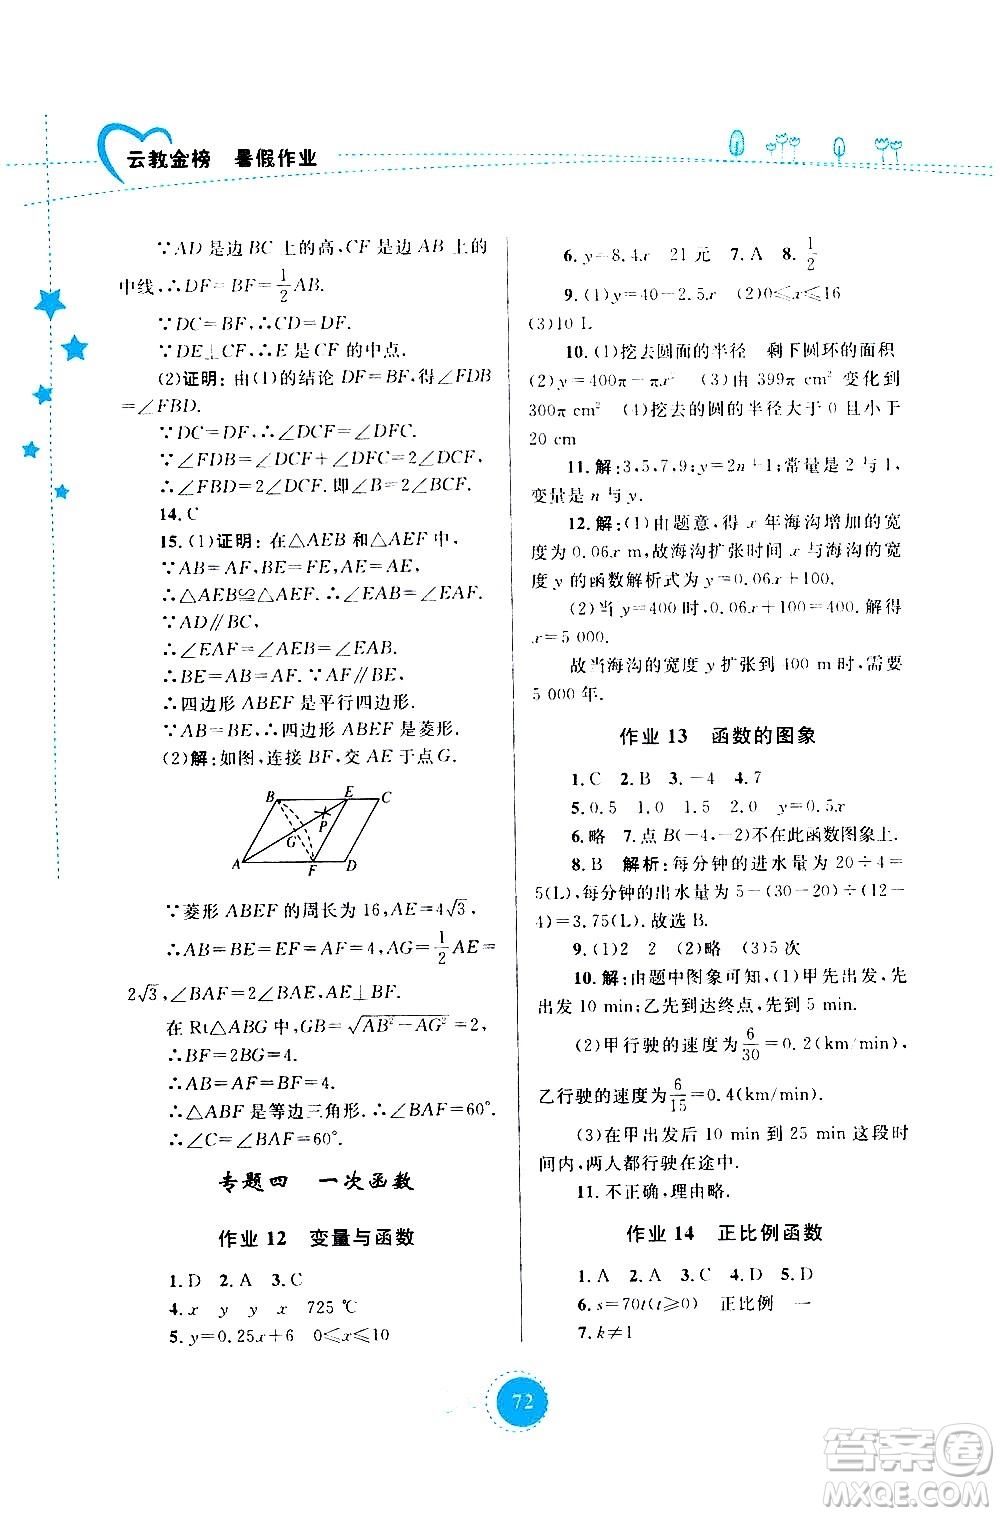 云教金榜 暑假作业
∵AD 是边 BC 上的高,CF 是边 AB 上的
中线,∴DF=BF=1/2AB.
∵DC=BF,∴CD=DF.
∵DE⊥CF,∴E 是 CF 的中点.
(2)证明:由(1)的结论 DF=BF,得∠FDB
=∠FBD.
∵DC=DF,∴∠DCF=∠DFC.
∴∠FDB=∠DCF+∠DFC=2∠DCF.
∴∠FBD=2∠DCF.即∠B=2∠DCF.
14.C
15.(1)证明:在△AEB 和△AEF 中,
∵AB=AF,BE=FE,AE=AE,
∴△AEB≌△AEF.
∵AD∥BC,
∴∠EAF=∠AEB=∠EAB.
∴BE=AB=AF.∵AF∥BE,
∴四边形 ABEF 是平行四边形.
∵AB=BE,∴四边形 ABEF 是菱形.
(2)解:如图,连接 BF,交 AE 于点G.
B E C
P
G
A F D
∵菱形 ABEF 的周长为 16,AE=4√3,
∴AB=BE=EF=AF=4,AG=1/2AE=
2√3,∠BAF=2∠BAE,AE⊥BF.
在 Rt△ABG 中,GB=√(AB²-AG²)=2,
∴BF=2BG=4.
∴AB=AF=BF=4.
∴△ABF 是等边三角形.∴∠BAF=60°.
∴∠C=∠BAF=60°.
专题四 一次函数
作业 12 变量与函数
1.D 2.A 3.C
4.x y y x 725 ℃
5.y=0.25x+6 0≤x≤10
6.y=8.4x 21 元 7.A 8.1/2
9.(1)y=40-2.5x (2)0≤x≤16
(3)10 L
10.(1)挖去圆面的半径 剩下圆环的面积
(2)y=400π-πx² (3)由 399π cm² 变化到
300π cm² (4)挖去的圆的半径大于 0 且小于
20 cm
11.解:3,5,7,9;y=2n+1;常量是 2 与 1,
变量是 n 与 y.
12.解:(1)由题意,得 x 年海沟增加的宽
度为 0.06x m,故海沟扩张时间 x 与海沟的宽
度 y 的函数解析式为 y=0.06x+100.
(2)当 y=400时,0.06x+100=400.解得
x=5 000.
故当海沟的宽度 y 扩张到 400 m时,需要
5 000 年.
作业 13 函数的图象
1.C 2.B 3.-4 4.7
5.0.5 1.0 1.5 2.0 y=0.5x
6.略 7.点 B(-4,-2)不在此函数图象上.
8.B 解析:每分钟的进水量为 20÷4=
5(L),每分钟的出水量为 5-(30-20)÷(12-
4)=3.75(L).故选 B.
9.(1)2 2 (2)略 (3)5 次
10.解:由题中图象可知,(1)甲先出发,先
出发 10 min;乙先到达终点,先到 5 min.
(2)甲行驶的速度为6/30=0.2(km/min),
乙行驶的速度为6/15=0.4(km/min).
(3)在甲出发后 10 min 到 25 min 这段时
间内,两人都行驶在途中.
11.不正确,理由略.
作业 14 正比例函数
1.A 2.A 3.C 4.D 5.D
6.s=70t(t≥0) 正比例 一
7.k≠1
72
答案圈
MXQE.COM